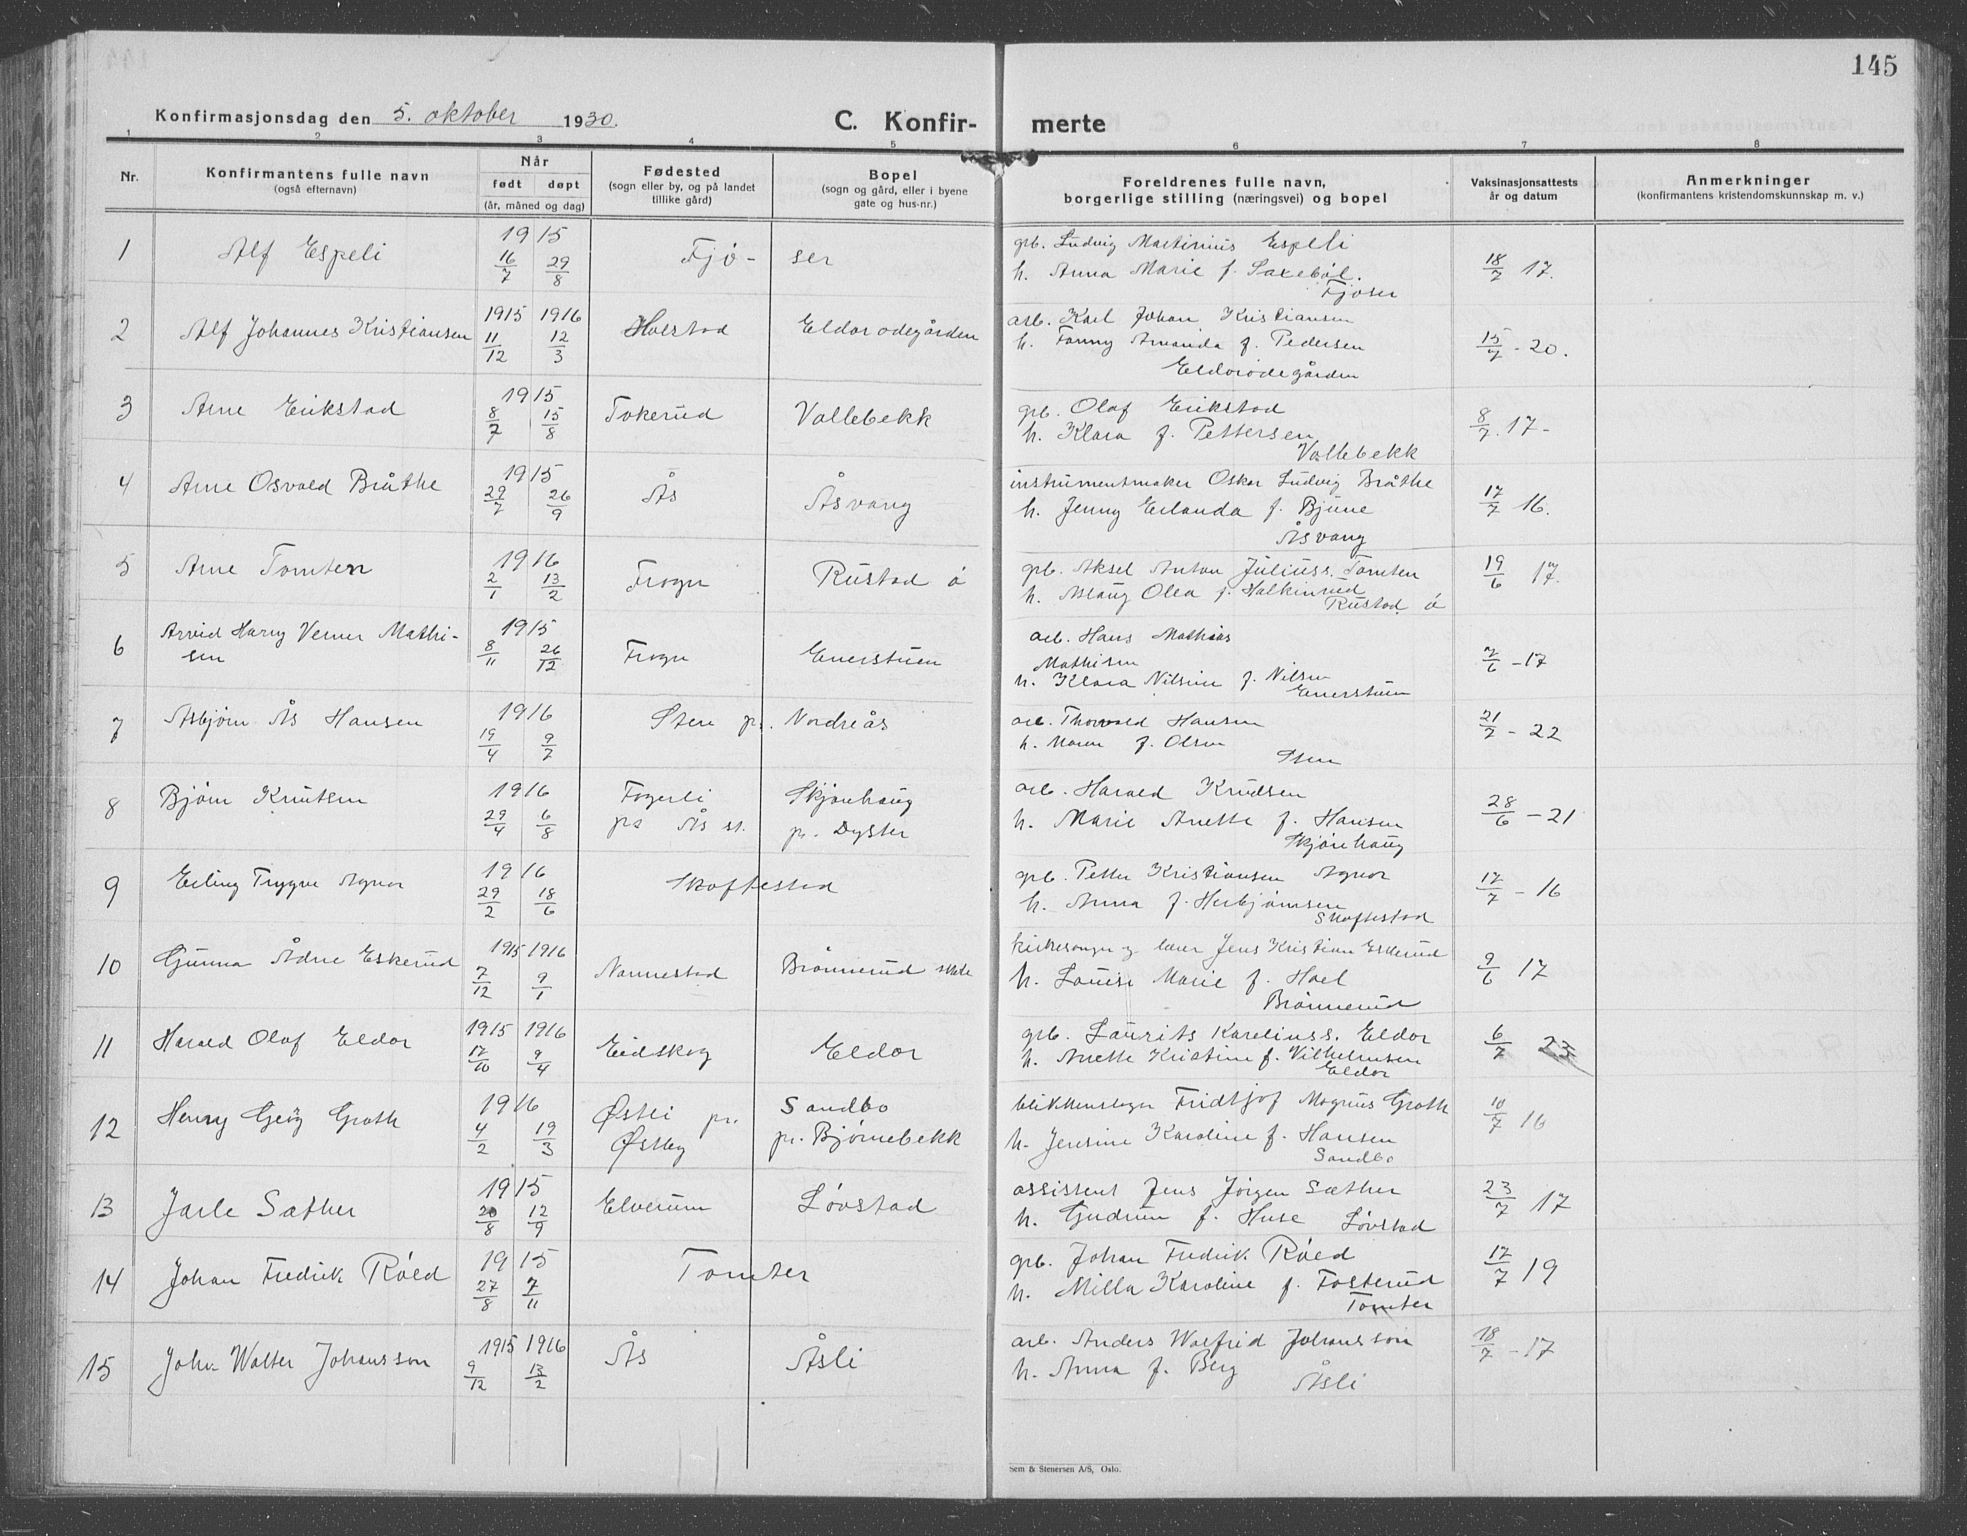 145
Konfirmasjonsdag den 5. oktober 1930.
C. Konfir- merte
1 2 3 4 5 6 7 8
Nr.
Konfirmantens fulle navn
(også efternavn)
Når
født døpt
(år, måned og dag)
Fødested
(sogn eller by, og på landet
tillike gård)
Bopel
(sogn og gård, eller i byene
gate og hus-nr.)
Foreldrenes fulle navn,
borgerlige stilling (næringsvei) og bopel
Vaksinasjonsattests
år og datum
Anmerkninger
(konfirmantens kristendomskunnskap m. v.)
1 Alf Espeli 1915 16/7 29/8 Fjø- ser
grb. Ludvig Martinius Espeli
h. Anna Marie f. Saxebøl.
Fjøser
18/7 17.
2 Alf Johannes Kristiansen 1915 1916 11/12 12/3 Holstad Eldorødegården
arb. Karl Johan Kristiansen
h. Fanny Amanda f. Pedersen
Eldorødegården
15/7 - 20.
3 Arne Erikstad 1915 8/7 15/8 Tokerud Vollebekk
grb. Olaf Erikstad
h. Klara f. Pettersen
Vollebekk
8/7. 17-
4 Arne Osvald Bråthe 1915 29/7 26/9 Ås Åsvang
instrumentmaker Oskar Ludvig Bråthe
h. Jenny Erlanda f. Bjune
Åsvang
17/7 16.
5 Arne Tomter 1916 2/1 13/2 Frogn Rustad ø
grb. Aksel Anton Juliuss. Tomten
h. Aslaug Olea f. Halkinrud
Rustad ø
19/6 17.
6 Arvid Harry Verner Mathi-
sen
1915 8/11 26/12 Frogn Enerstuen
arb. Hans Mathias
Mathisen
h. Klara Nilsine f. Nilsen
Enerstuen
7/6 - 17
7 Asbjørn Ås Hansen 1916 19/4 9/7 Sten pr. Nordreås
arb. Thorvald Hansen
h. Maren f. Olsen
Sten
21/7 - 22
8 Bjørn Knutsen 1916 29/4 6/8
Fogerli
pr Ås st.
Skjønhaug
pr. Dyster
arb. Harald Knudsen
h. Marie Anette f. Hansen
Skjønhaug
28/6 - 21
9 Erling Trygve Agnor 1916 29/2 18/6 Skoftestad
grb. Petter Kristiansen Agnor
h. Anna f. Herbjørnsen
Skoftestad
17/7 - 16
10 Gunna Ådne Eskerud 1915 1916 7/12 9/1 Nannestad Brønnerud skole
kirkesanger og lærer Jens Kristian Eskerud
h. Louise Marie f. Hoel
Brønnerud
9/6 17
11 Harald Olaf Eldor 1915 1916 17/10 9/4 Eidskog Eldor
grb. Laurits Kareliuss. Eldor
h. Anette Kristine f. Vilhelmsen
Eldor
6/7 23
12 Henry Georg Groth 1916 4/2 19/3
Østli pr.
Østby
Sandbo
pr. Bjørnebekk
blikkenslager Fridtjof Magnus Groth
h. Jensine Karoline f. Hansen
Sandbo
10/7 16
13 Jarle Sæther 1915 20/8 12/9 Elverum Løvstad
assistent Jens Jørgen Sæther
h. Gudrun f. Huse Løvstad
23/7 17
14 Johan Fredrik Røed 1915 27/8 7/11 Tomter
grb. Johan Fredrik Røed
h. Milla Karoline f. Fosterud
Tomter
17/7 19
15 John Walter Johansson 1915 1916 9/12 13/2 Ås Åsli
arb. Anders Walfrid Johansson
h. Anna f. Berg
Åsli
18/7 - 17
Sem & Stenersen A/S, Oslo.